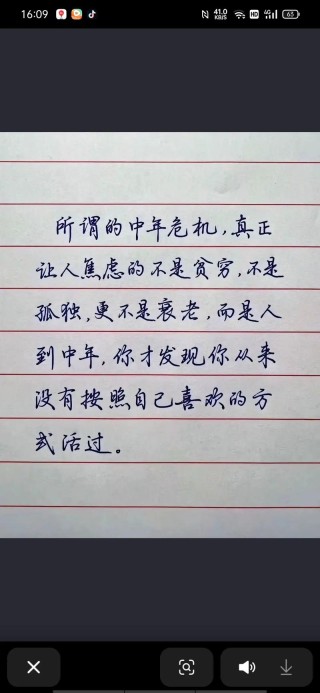 16:09
41.0
KB/S
HD
4G
63
所谓的中年危机,真正
让人焦虑的不是贫穷,不是
孤独,更不是衰老,而是人
到中年,你才发现你从来
没有按照自己喜欢的方
式活过。